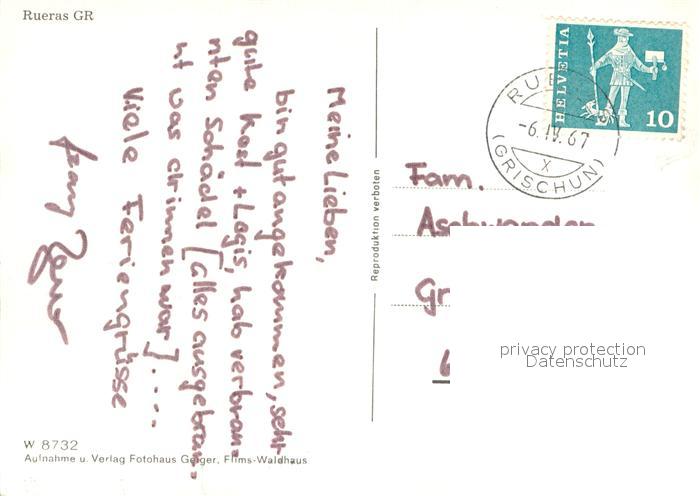 Rueras GR
Meine Lieben,
bin gut angekommen, sehr
gute Kost + Logis, hab verbran-
nten Schädel [alles ausgebran-
nt was drinnen war]....
Viele Feriengrüsse
HELVETIA
10
RUE
-6.IV.67
X
(GRISCHUN)
Reproduktion verboten
Fam.
Gr
privacy protection
Datenschutz
W 8732
Aufnahme u. Verlag Fotohaus Geiger, Flims-Waldhaus